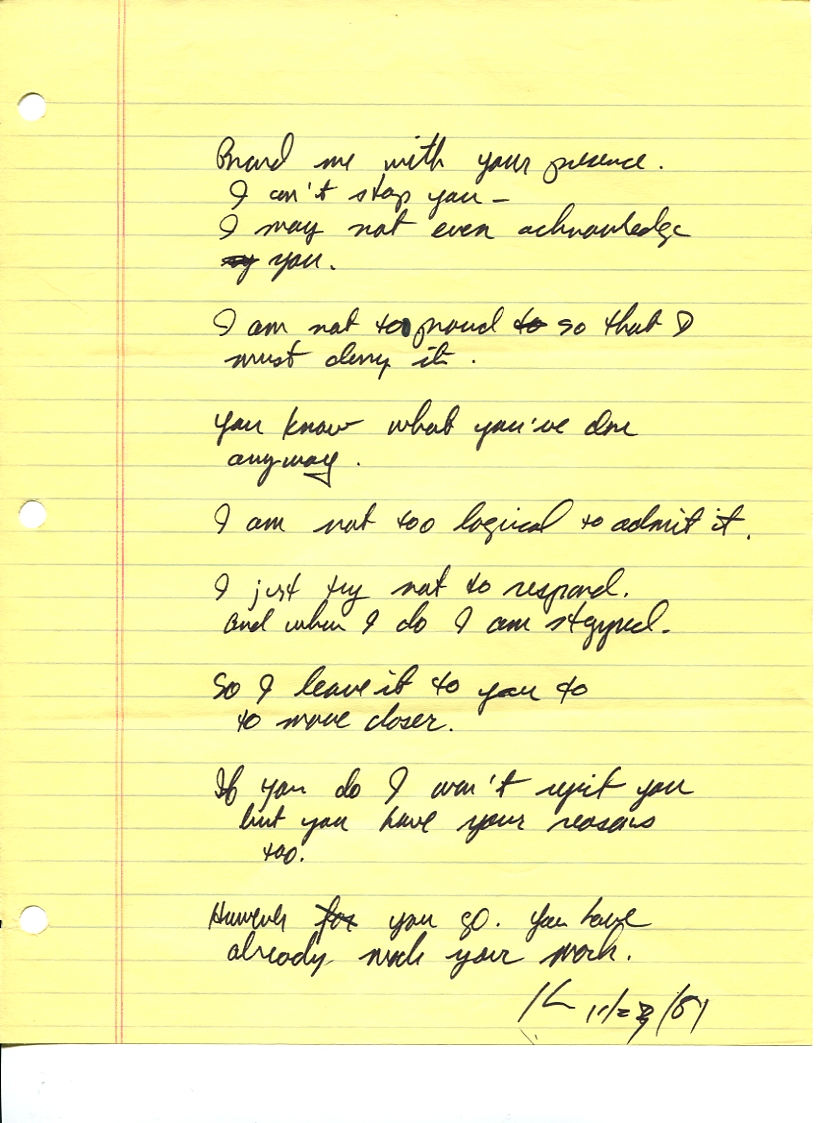 Brand me with your presence.
I can't stop you –
I may not even acknowledge
you.
I am not too proud to so that I
must deny it.
You know what you've done
anyway.
I am not too logical to admit it.
I just try not to respond.
And when I do I am stopped.
So I leave it to you to
to move closer.
If you do I won't reject you
but you have your reasons
too.
However far you go. You have
already made your mark.
11/2 /81